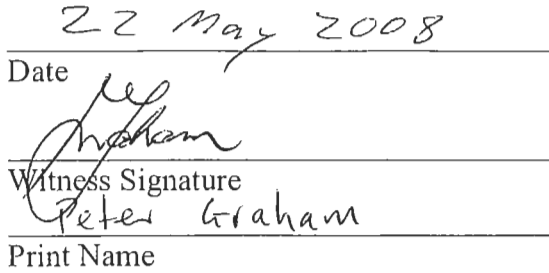 22 May 2008
Date
Graham
Witness Signature
Peter Graham
Print Name